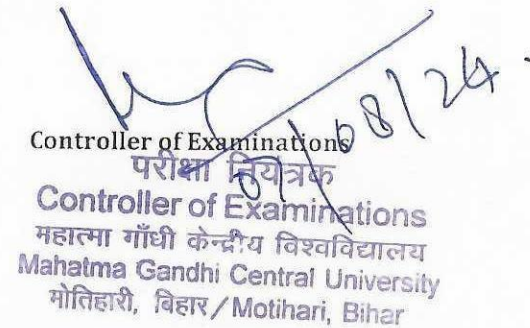 Controller of Examinations
07/08/24
परीक्षा नियंत्रक
Controller of Examinations
महात्मा गाँधी केन्द्रीय विश्वविद्यालय
Mahatma Gandhi Central University
मोतिहारी, बिहार/Motihari, Bihar